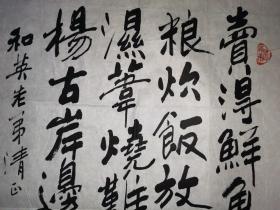 賣得鮮魚
粮炊飯放
濕葦燒難
楊古岸邊
和英老弟清正